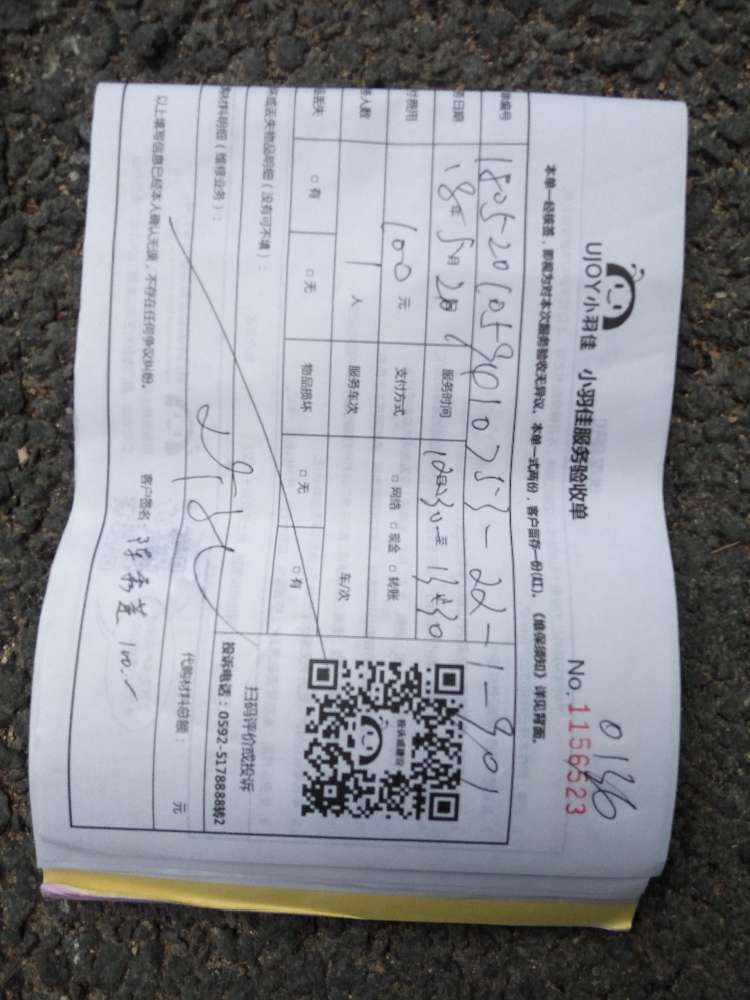 UJOY小羽佳 小羽佳服务验收单
No.1156523
0136
本单一经核签，即视为对本次服务验收无异议。本单一式两份，客户留存一份(红)。《维保须知》详见背面。
编号 1805201059010753-22-1-901
日期 18年5月20日 服务时间 12:30至13:30
费用 100元 支付方式 □网络 □现金 □转账
人数 1人 服务车次 车/次
丢失 □有 □无 物品损坏 □无 □有
坏或丢失物品明细（没有可不填）：
投诉或建议
扫码评价或投诉
投诉电话：0592-5178888转2
购材料明细（维修业务）：
代购材料总额： 元
以上填写信息已经本人确认无误，不存在任何争议纠纷。 客户签名 100.